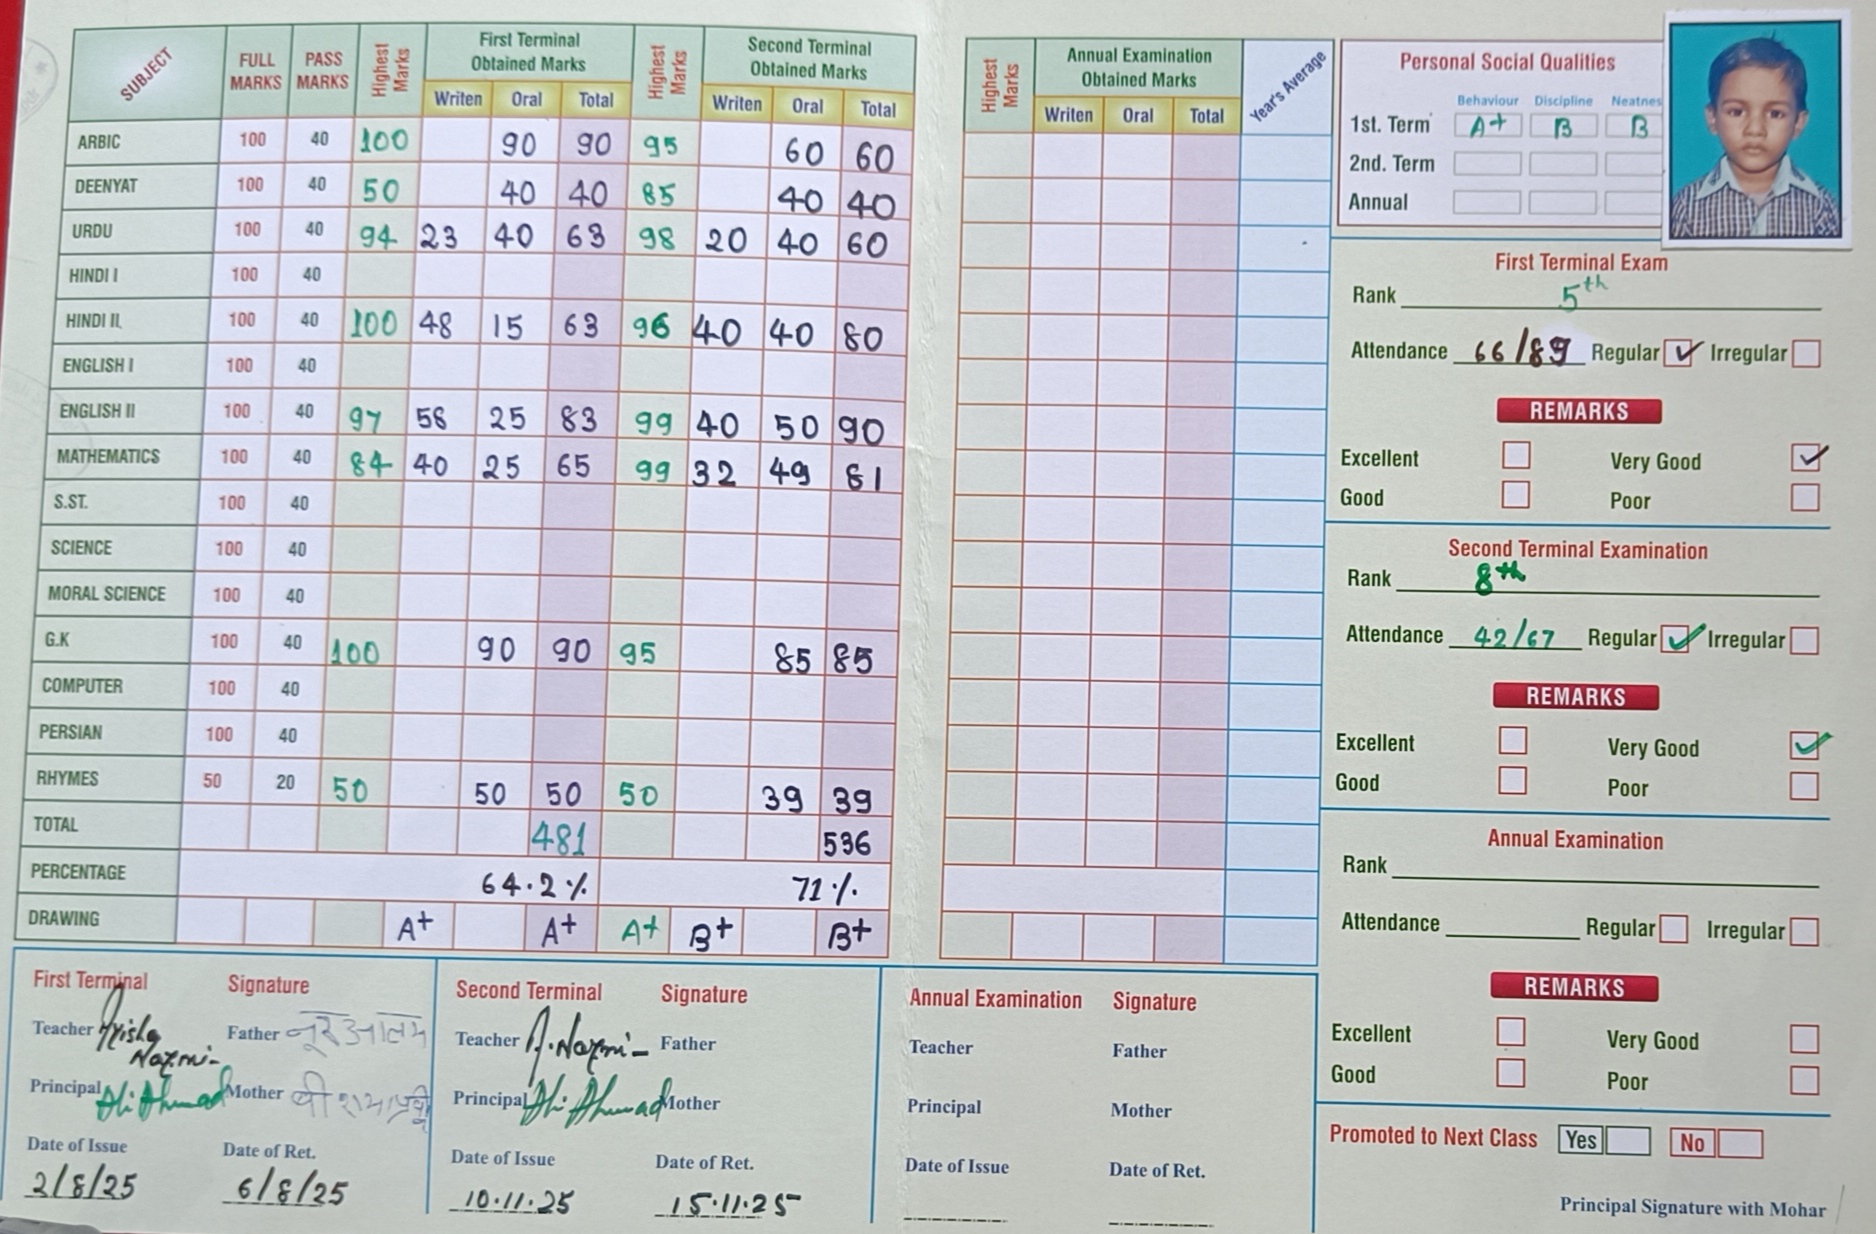 SUBJECT FULL MARKS PASS MARKS Highest Marks First Terminal Obtained Marks Highest Marks Second Terminal Obtained Marks
Writen Oral Total Writen Oral Total
ARBIC 100 40 100 90 90 95 60 60
DEENYAT 100 40 50 40 40 85 40 40
URDU 100 40 94 23 40 63 98 20 40 60
HINDI I 100 40
HINDI II 100 40 100 48 15 63 96 40 40 80
ENGLISH I 100 40
ENGLISH II 100 40 97 58 25 83 99 40 50 90
MATHEMATICS 100 40 84 40 25 65 99 32 49 81
S.ST. 100 40
SCIENCE 100 40
MORAL SCIENCE 100 40
G.K 100 40 100 90 90 95 85 85
COMPUTER 100 40
PERSIAN 100 40
RHYMES 50 20 50 50 50 50 39 39
TOTAL 481 536
PERCENTAGE 64.2% 71%
DRAWING A+ A+ A+ B+ B+
First Terminal Signature
Teacher Nazmi Father नूर आलम
Principal Ali Ahmad Mother
Date of Issue Date of Ret.
2/8/25 6/8/25
Second Terminal Signature
Teacher A. Nazmi Father
Principal Ali Ahmad Mother
Date of Issue Date of Ret.
10.11.25 15.11.25
Highest Marks Annual Examination Obtained Marks Year's Average
Writen Oral Total
Annual Examination Signature
Teacher Father
Principal Mother
Date of Issue Date of Ret.
Personal Social Qualities
Behaviour Discipline Neatnes
1st. Term A+ B B
2nd. Term
Annual
First Terminal Exam
Rank 5th
Attendance 66/89 Regular ✓ Irregular
REMARKS
Excellent Very Good ✓
Good Poor
Second Terminal Examination
Rank 8th
Attendance 42/67 Regular ✓ Irregular
REMARKS
Excellent Very Good ✓
Good Poor
Annual Examination
Rank
Attendance Regular Irregular
REMARKS
Excellent Very Good
Good Poor
Promoted to Next Class Yes No
Principal Signature with Mohar